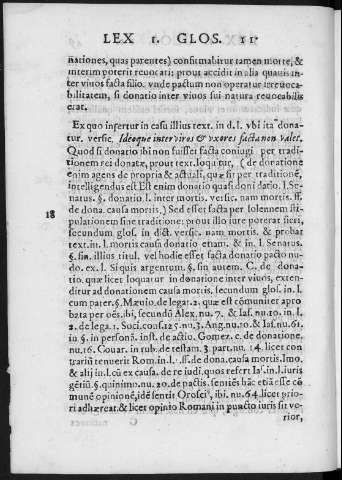 LEX 1. GLOS. 11
nationes, quas parentes) confirmabitur tamen morte, &
interim poterit reuocari: prout accidit in alia quauis in-
ter viuos facta filio. vnde pactum non operatur irreuoca-
bilitatem, si donatio inter viuos sui natura reuocabilis
erat.
Ex quo infertur in casu illius text. in d.l. vbi ita dona-
tur. versic. Ideoque inter viros & vxores facta non valet.
Quod si donatio ibi non fuisset facta coniugi per tradi-
tionem rei donatæ, prout text. loquitur, (de donatione
enim agens de propria & actuali, quæ fit per traditionē,
intelligendus est Est enim donatio quasi doni datio. l. Se-
natus. §. donatio. l. inter mortis. versic. nam mortis. ff.
18
de dona. causa mortis,) Sed esset facta per solennem sti-
pulationem sine traditione: prout illo iure poterat fieri,
secundum glos. in dict. versic. nam mortis. & probat
text. in. l. mortis causa donatio etiam. & in l. Senatus.
§. fin. illius titul. vel hodie esset facta donatio pacto nu-
do. ex. l. Si quis argentum. §. sin autem. C. de dona-
tio. quæ licet loquatur in donatione inter viuos, exten-
ditur ad donationem causa mortis, secundum glos. in l.
cum pater. §. Mæuio. de legat. 2. quæ est cōmuniter apro
bata per oēs. ibi, secundū Alex. nu. 7. & Ias. nu. 10. in l.
2. de lega. 1. Soci. cons. 125. nu. 3. Ang. nu. 20. & Ias. nu. 61.
in §. in personā. inst. de actio. Gomez. c. de donatione.
nu. 16. Couar. in rub. de testam. 3. part. nu. 14. licet con-
trariū tenuerit Rom. in l. 1. ff. de dona. causa mortis. Imo,
& alij in l. cū ex causa. de re iudi. quos refert Ias. in l. iuris
gētiū. §. quinimo. nu. 20. de pactis. sentiēs hāc etiā esse cō
munē opinionē, idē sentit Orosci, ibi, nu. 64. licet prio-
ri adhæreat. & licet opinio Romani in puncto iuris sit ve-
rior,